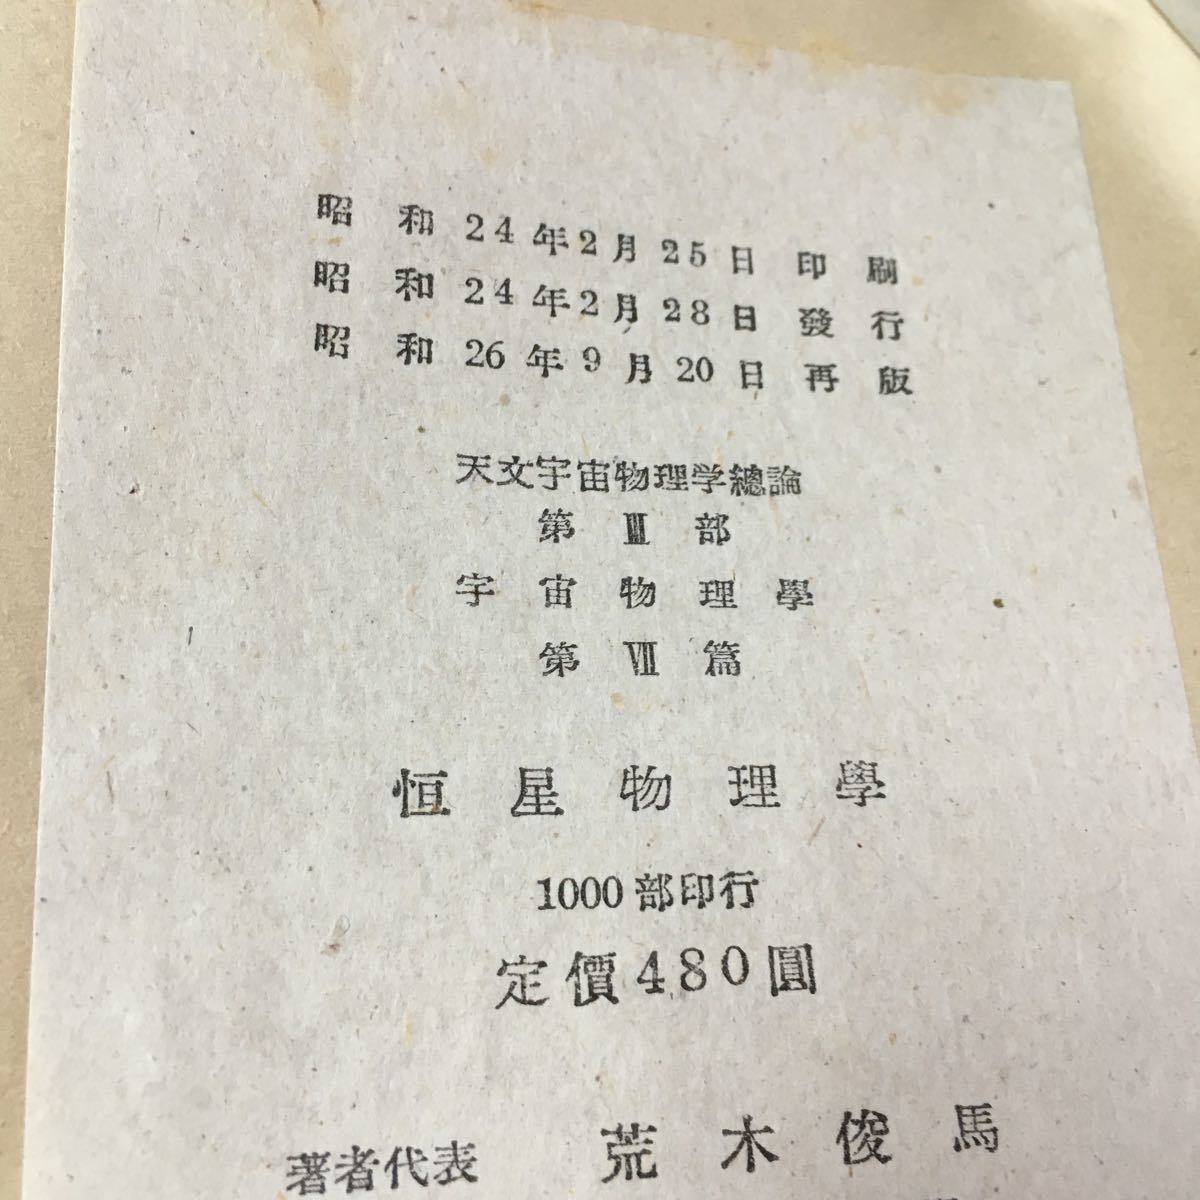 昭和24年2月25日印刷
昭和24年2月28日發行
昭和26年9月20日再版
天文宇宙物理学總論
第Ⅲ部
宇宙物理學
第Ⅶ篇
恒星物理學
1000部印行
定價480圓
著者代表 荒木俊馬